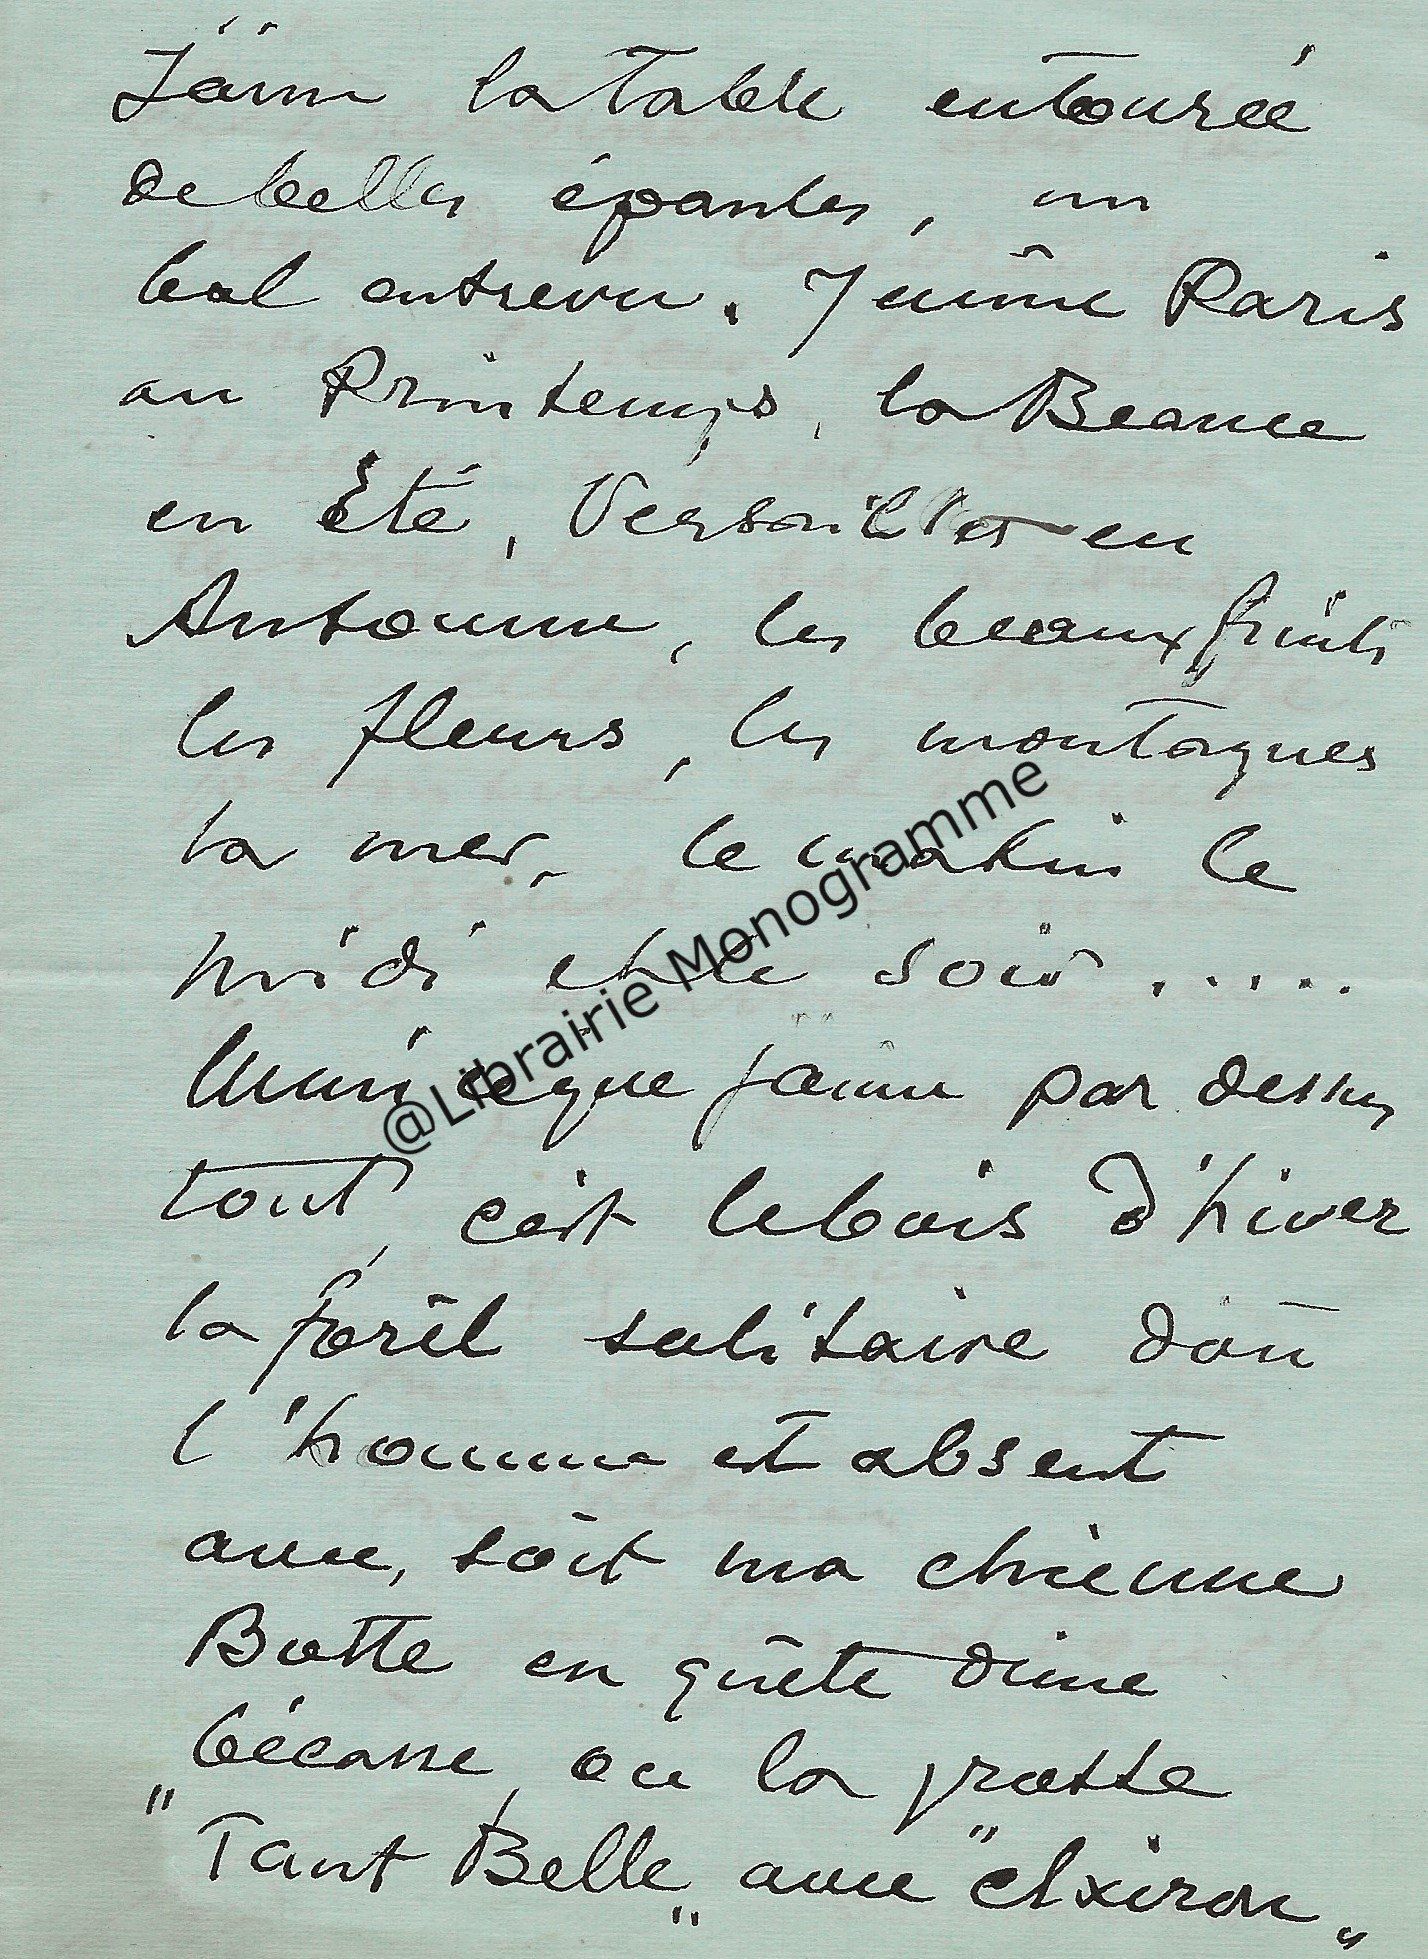 J'aime la Table entourée
de belles épaules, un
bal entrevu. J'aime Paris
au Printemps, la Beauce
en Eté, Versailles en
Automne, les beaux fruits
les fleurs, les montagnes
la mer, le matin le
midi et le soir .....
Mais ce que j'aime par dessus
tout, c'est le bois d'hiver
la forêt solitaire d'où
l'homme est absent
avec, soit ma chienne
Botte en quête d'une
bécasse, ou la
"Tant Belle" avec "
@Librairie Monogramme